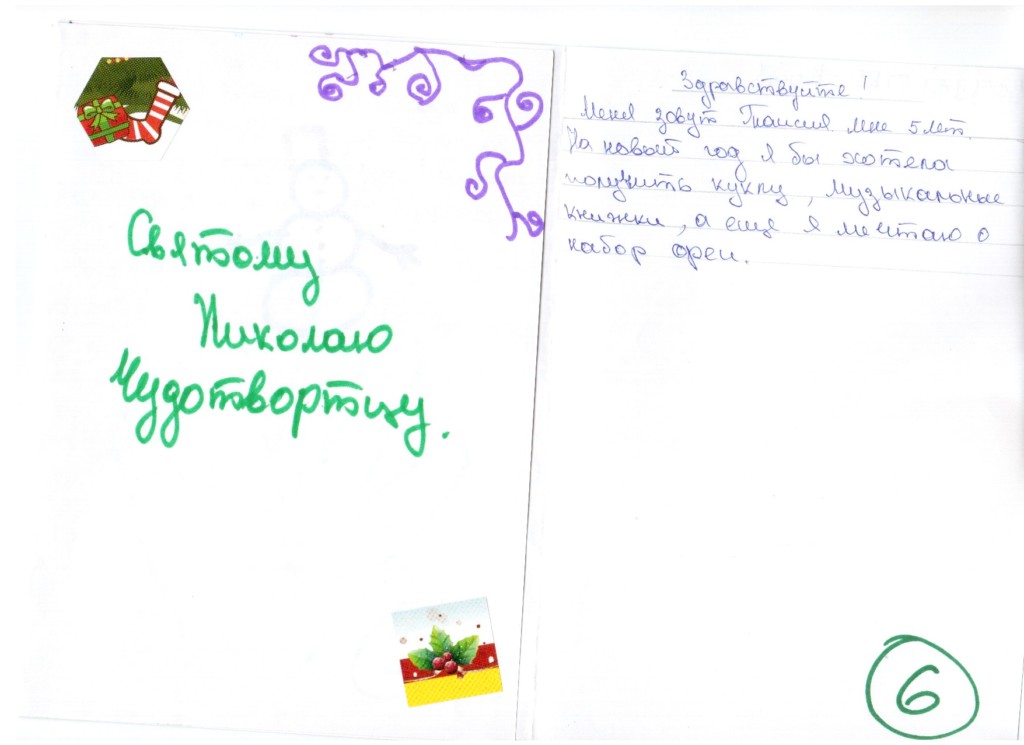 Святому
Николаю
Чудотвортцу.
Здравствуйте!
Меня зовут Таисия мне 5 лет.
На новый год я бы хотела
получить куклу, музыкальные
книжки, а еще я мечтаю о
набор феи.
6